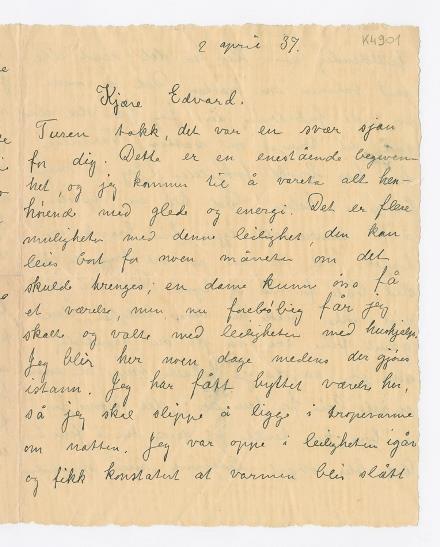 2 april 37.
K4901
Kjære Edvard.
Tusen takk, det var en svær sjau
for dig. Dette er en enestående begiven
het, og jeg kommer til å vareta alt hen-
hørende med glede og energi. Det er flere
muligheter med denne leilighet, den kan
leies bort for noen måneter om det
skulde trenges; en dame kunn også få
et værelse, men nu foreløbig får jeg
skalte og valte med leiligheten med hushjelp.
Jeg blir her noen dage medens der gjøres
istann. Jeg har fått byttet værelse her,
så jeg skal slippe å ligge i tropevarme
om natten. Jeg var oppe i leiligheten igår
og fikk konstatert at varmen blir slått